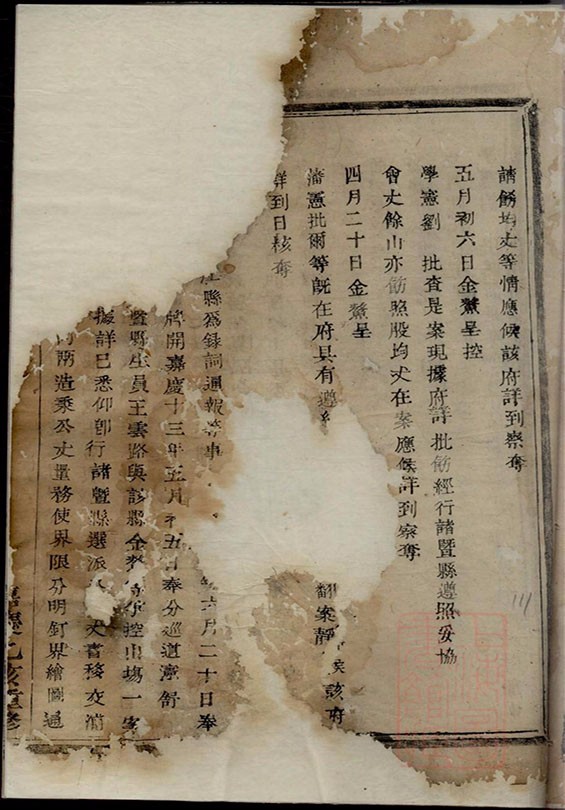 請飭均丈等情應候該府詳到察奪
五月初六日金鰲呈控
學憲劉 批查是案現據府詳批飭經行諸暨縣遵照妥協
會丈餘山亦飭照股均丈在案應候詳到察奪
四月二十日金鰲呈
藩憲批爾等既在府具有遵 候該府
詳到日核奪 翻案靜
縣為錄詞通報等事 六月二十日奉
牌開嘉慶十三年五月初五日奉分巡道憲舒
暨縣生員王雲路與該縣金 控山塲一案
據詳已悉仰即行諸暨縣選派 丈書移交浦
兩造秉公丈量務使界限分明釘界繪圖通
乙亥重修